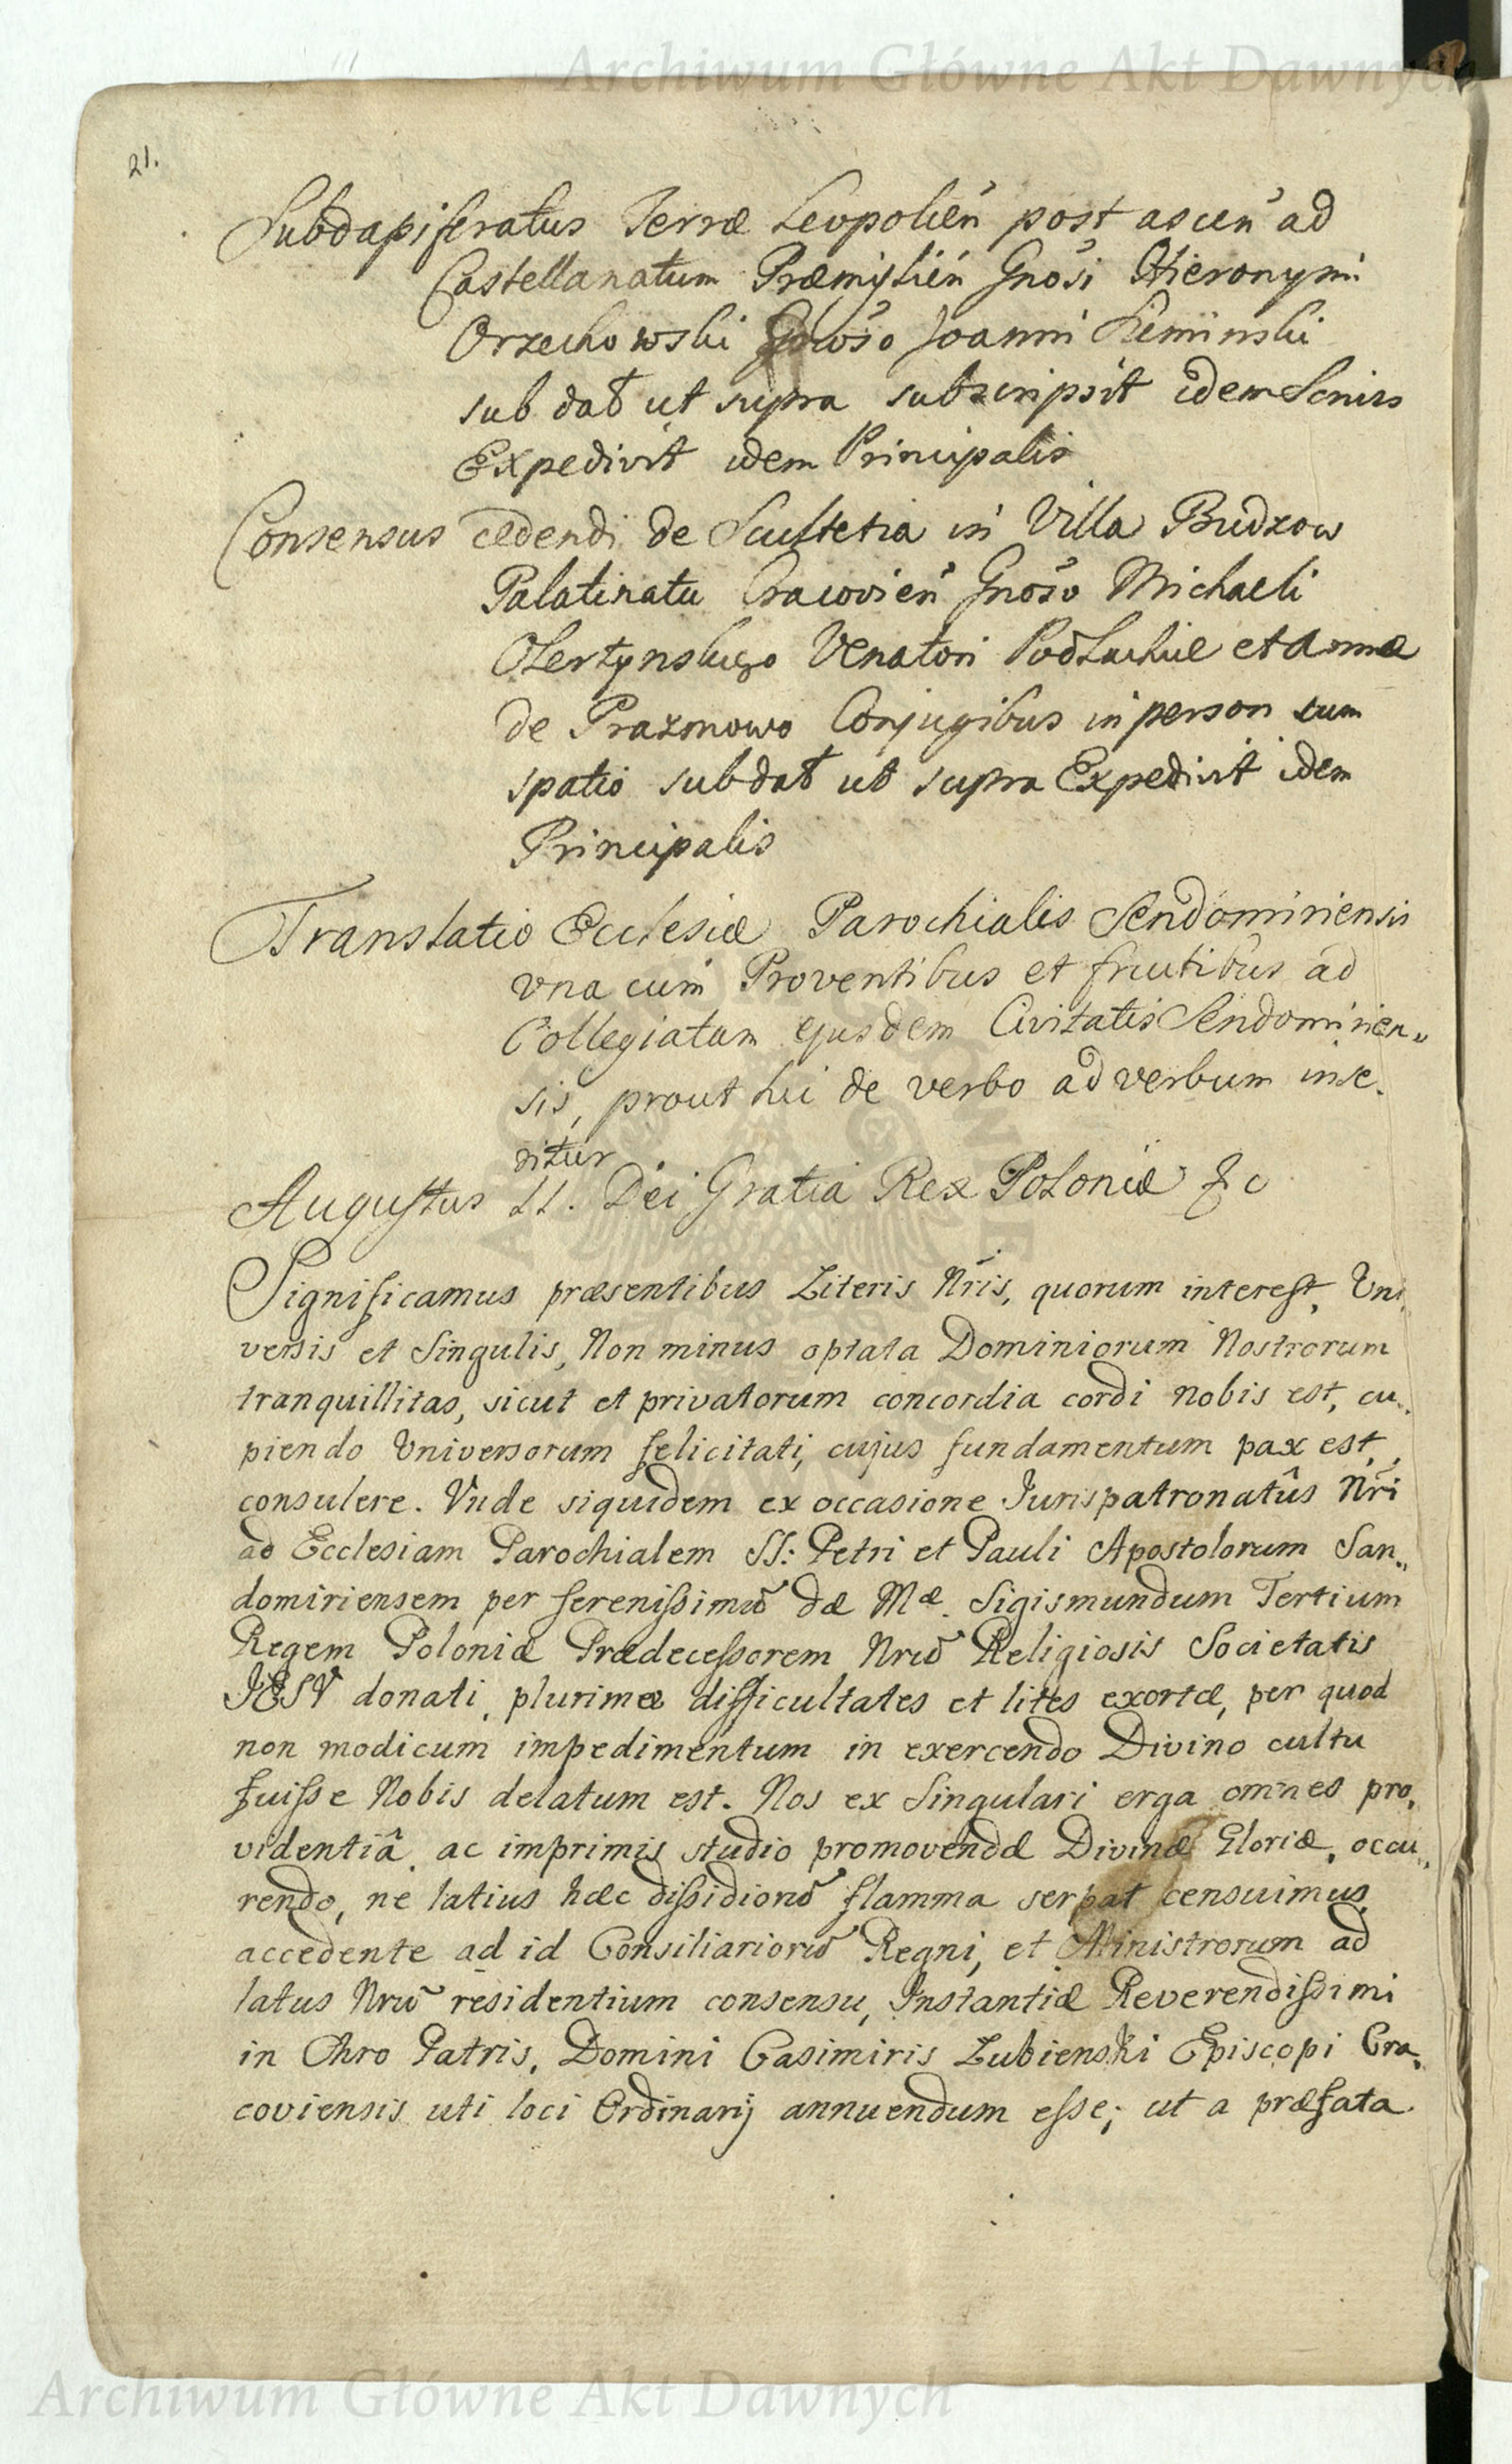 Archiwum Główne Akt Dawnych
21.
Subdapiferatus Terræ Leopolień post ascen ad
Castellanatum Præmislień Gnosi Hieronymi
Orzechowski Gnoso Joanni Sieminski
sub dat ut supra subscripsit idem Sermus
Expedivit idem Principalis
Consensus cedendi de Scultetia in Villa Budzow
Palatinatu Cracovień Gnoso Michaeli
Venatori Podlachiæ et Annæ
de Prazmowo Conjugibus in person cum
spatio sub dat ut supra Expedivit idem
Principalis
Translatio Ecclesiæ Parochialis Sendomiriensis
vna cum Proventibus et fructibus ad
Collegiatam ejusdem Civitatis Sendomirien„
sis, prout hic de verbo ad verbum inse„
ritur
Augustus II. Dei Gratia Rex Poloniæ &c
Significamus præsentibus Literis Nris, quorum interest, Vni„
versis et Singulis, Non minus optata Dominiorum Nostrorum
tranquillitas, sicut et privatorum concordia cordi nobis est, cu„
piendo Vniversorum felicitati, cujus fundamentum pax est,
consulere. Vnde siquidem ex occasione Jurispatronatûs Nri
ad Ecclesiam Parochialem SS: Petri et Pauli Apostolorum San„
domiriensem per serenissimũ dæ Mæ. Sigismundum Tertium
Regem Poloniæ Prædecessorem Nrũ Religiosis Societatis
IESV donati, plurimæ difficultates et lites exortæ, per quod
non modicum impedimentum in exercendo Divino cultu
fuisse Nobis delatum est. Nos ex Singulari erga omnes pro„
videntiâ, ac imprimis studio promovendæ Divinæ Gloriæ, occu„
rendo, ne latius hæc dissidiorũ flamma serpat censuimus
accedente ad id Consiliariorũ Regni, et Ministrorum ad
latus Nrũ residentium consensu, Instantiæ Reverendissimi
in Chro Patris, Domini Casimiris Lubienski Episcopi Cra„
coviensis uti loci Ordinarij annuendum esse; ut a præfata
Archiwum Główne Akt Dawnych